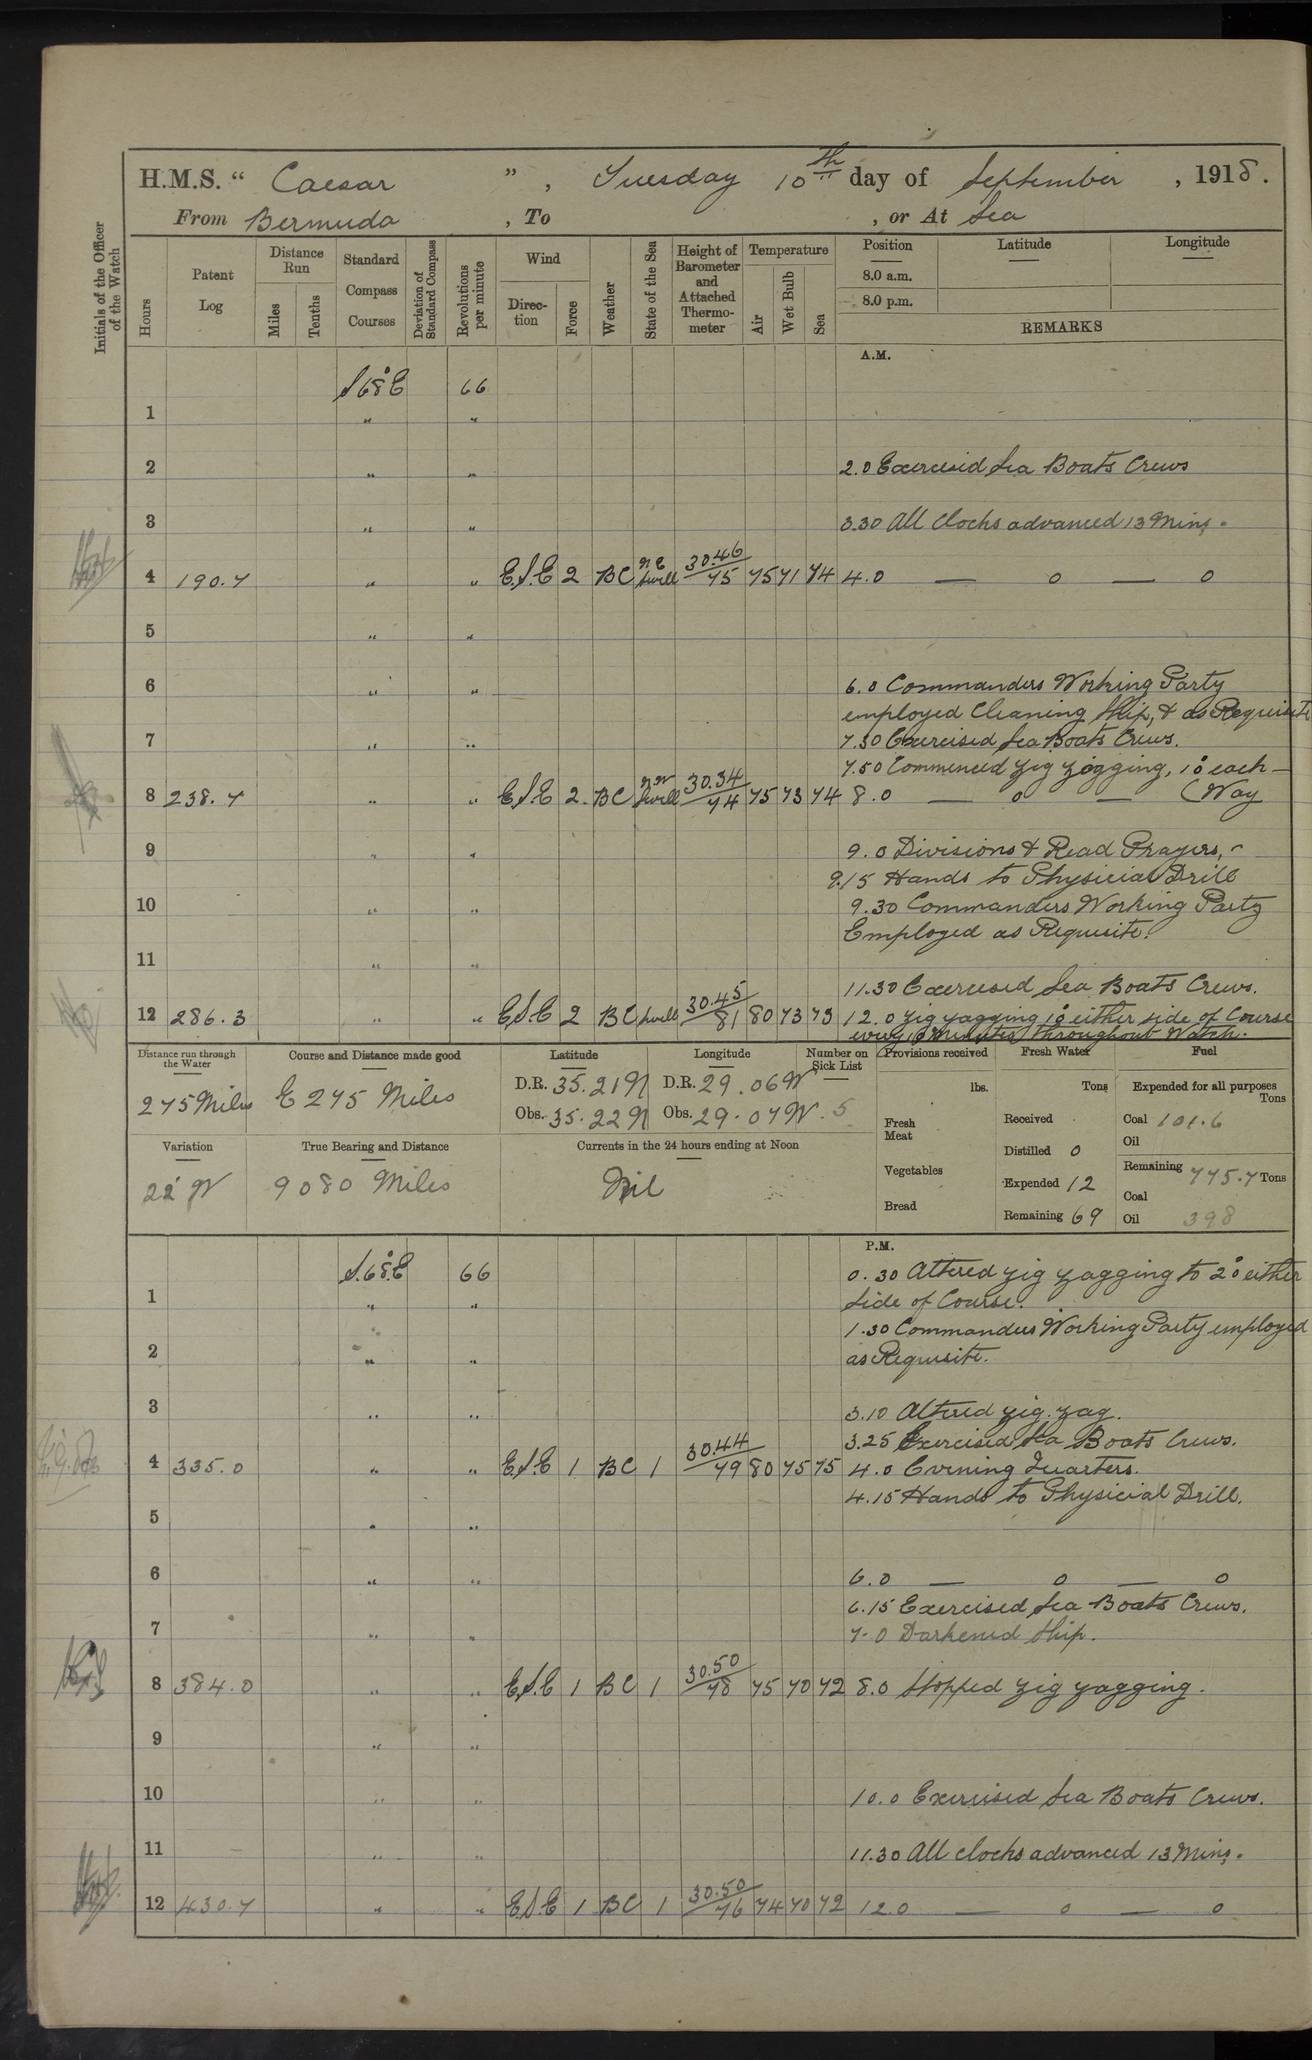 H.M.S. “ Caesar ” , Tuesday 10th day of September , 1918.
From Bermuda , To , or At Sea
Initials of the Officer of the Watch
Hours
Patent Log
Distance Run
Miles
Tenths
Standard Compass Courses
Deviation of Standard Compass
Revolutions per minute
Wind
Direc-tion
Force
Weather
State of the Sea
Height of Barometer and Attached Thermo-meter
Temperature
Air
Wet Bulb
Sea
Position Latitude Longitude
8.0 a.m.
8.0 p.m.
REMARKS
A.M.
S68°E 66
1 " "
2 " " 2.0 Exercised Sea Boats Crews
3 " " 3.30 All Clocks advanced 13 Mins.
4 190.7 " " E.S.E 2 BC NE Swell 30.46/75 75 71 74 4.0 — o — o
5 " "
6 " " 6.0 Commanders Working Party
employed Cleaning Ship, & as Requisite
7 " " 7.30 Exercised Sea Boats Crews.
7.50 Commenced zig zagging, 10° each —
8 238.7 " " E.S.E 2. BC NW Swell 30.34/74 75 73 74 8.0 — o — (Way
9 " " 9.0 Divisions & Read Prayers,
9.15 Hands to Physicial Drill
10 " " 9.30 Commanders Working Party
Employed as Requisite.
11 " "
11.30 Exercised Sea Boats Crews.
12 286.3 " " E.S.E 2 BC Swell 30.45/81 80 73 73 12.0 Zig zagging 10° either side of Course
every 10 minutes throughout Watch.
Distance run through the Water
275 Miles
Course and Distance made good
E 275 Miles
Latitude
D.R. 35.21N
Obs. 35.22N
Longitude
D.R. 29.06W
Obs. 29.07W.
Number on Sick List
5
Variation
22° W
True Bearing and Distance
9080 Miles
Currents in the 24 hours ending at Noon
Nil
Provisions received
lbs.
Fresh Meat
Vegetables
Bread
Fresh Water
Tons
Received
Distilled 0
Expended 12
Remaining 69
Fuel
Expended for all purposes
Tons
Coal 101.6
Oil
Remaining 775.7 Tons
Coal
Oil 398
P.M.
S.68°E 66 0.30 Altered zig zagging to 20° either
1 " " Side of Course.
1.30 Commanders Working Party employed
2 " " as Requisite.
3 " " 3.10 Altered zig. zag.
3.25 Exercised Sea Boats Crews.
4 335.0 " " E.S.E 1 BC 1 30.44/79 80 75 75 4.0 Evening Quarters.
4.15 Hands to Physicial Drill.
5 " "
6 " " 6.0 — o — o
6.15 Exercised Sea Boats Crews.
7 " " 7.0 Darkened Ship.
8 384.0 " " E.S.E 1 BC 1 30.50/78 75 70 72 8.0 Stopped zig zagging.
9 " "
10 " " 10.0 Exercised Sea Boats Crews.
11 " " 11.30 All clocks advanced 13 Mins.
12 430.7 " " E.S.E 1 BC 1 30.50/76 74 70 72 12.0 — o — o